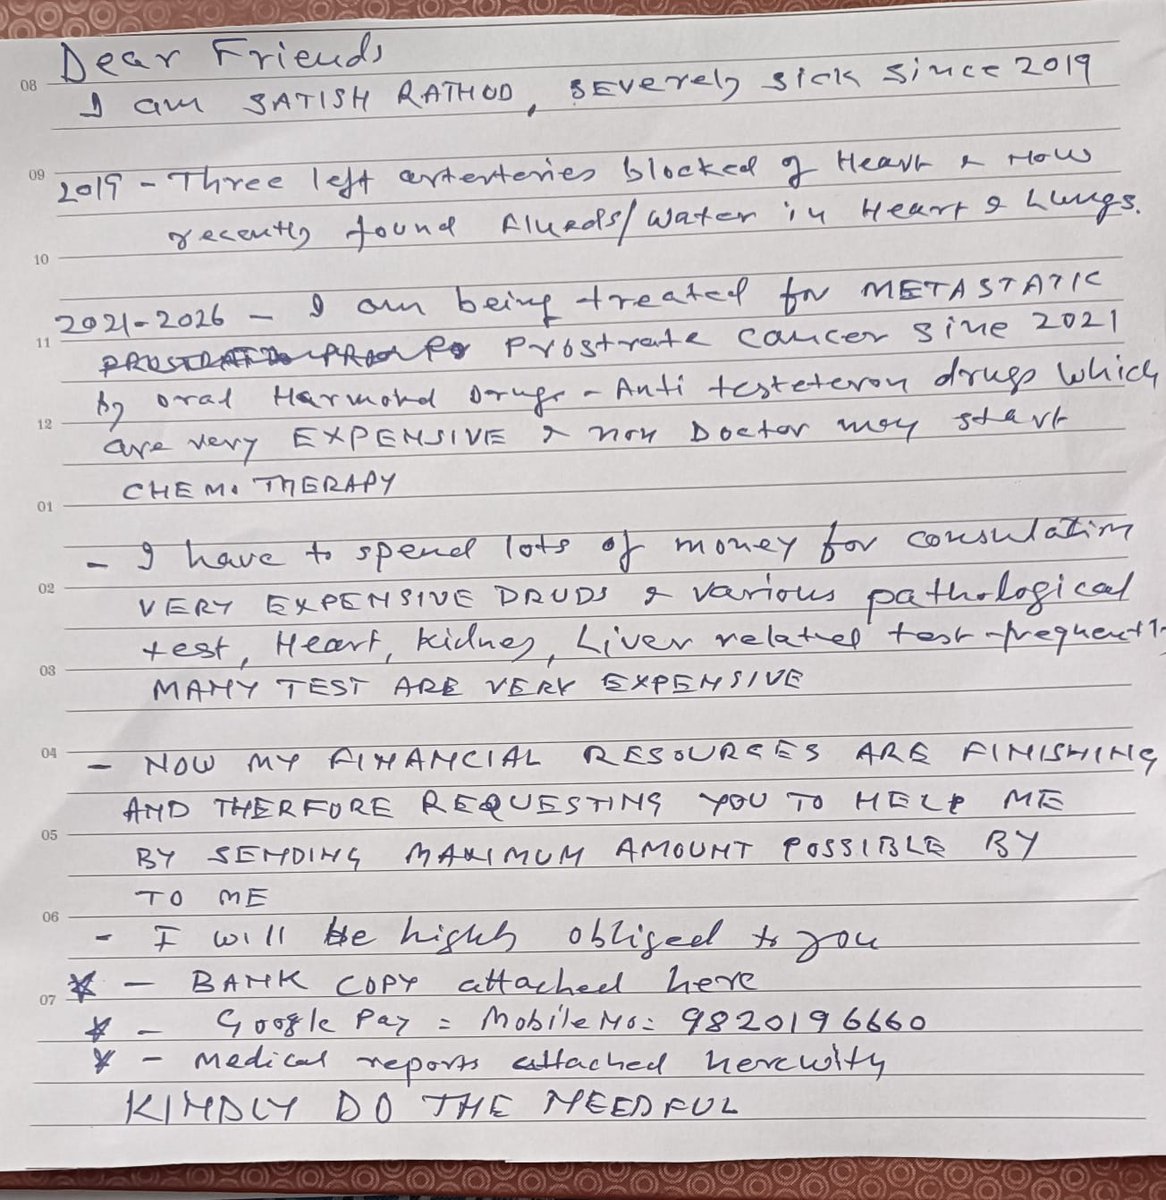 Dear Friends
08
I am SATISH RATHOD, SEVerely sick since 2019
09
2019 - Three left arterteries blocked of Heart & Now
recently found Flueds/Water in Heart & Lungs.
10
2021-2026 - I am being treated for METASTATIC
11
Prostrate cancer sine 2021
By oral Harmonal Drugs - Anti testeteron drugs which
12
are very EXPENSIVE & now Doctor may start
CHEMOTHERAPY
01
- I have to spend lots of money for consulation
02
VERY EXPENSIVE DRUDS & various pathological
test, Heart, kidney, Liver related test frequently
03
MANY TEST ARE VERY EXPENSIVE
04
- NOW MY FINANCIAL RESOURSES ARE FINISHING
AND THERFORE REQUESTING YOU TO HELP ME
05
BY SENDING MAXIMUM AMOUNT POSSIBLE BY
TO ME
06
- I will be highly obliged to you
* - BANK COPY attached here
07
* - Google Pay = Mobile No: 9820196660
* - Medical reports attached herewith
KINDLY DO THE NEEDFUL